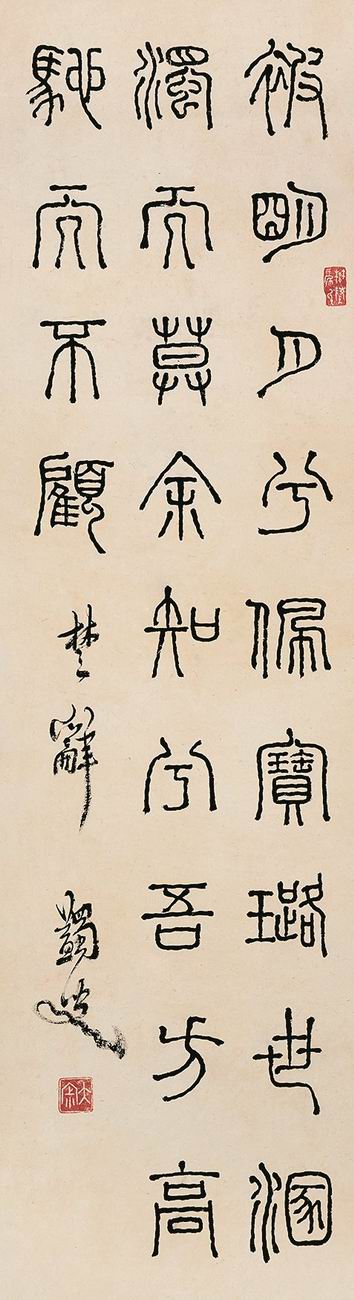 被朙月兮佩寶璐世溷
濁而莫余知兮吾方高
馳而不顧 楚辭 蠲叟